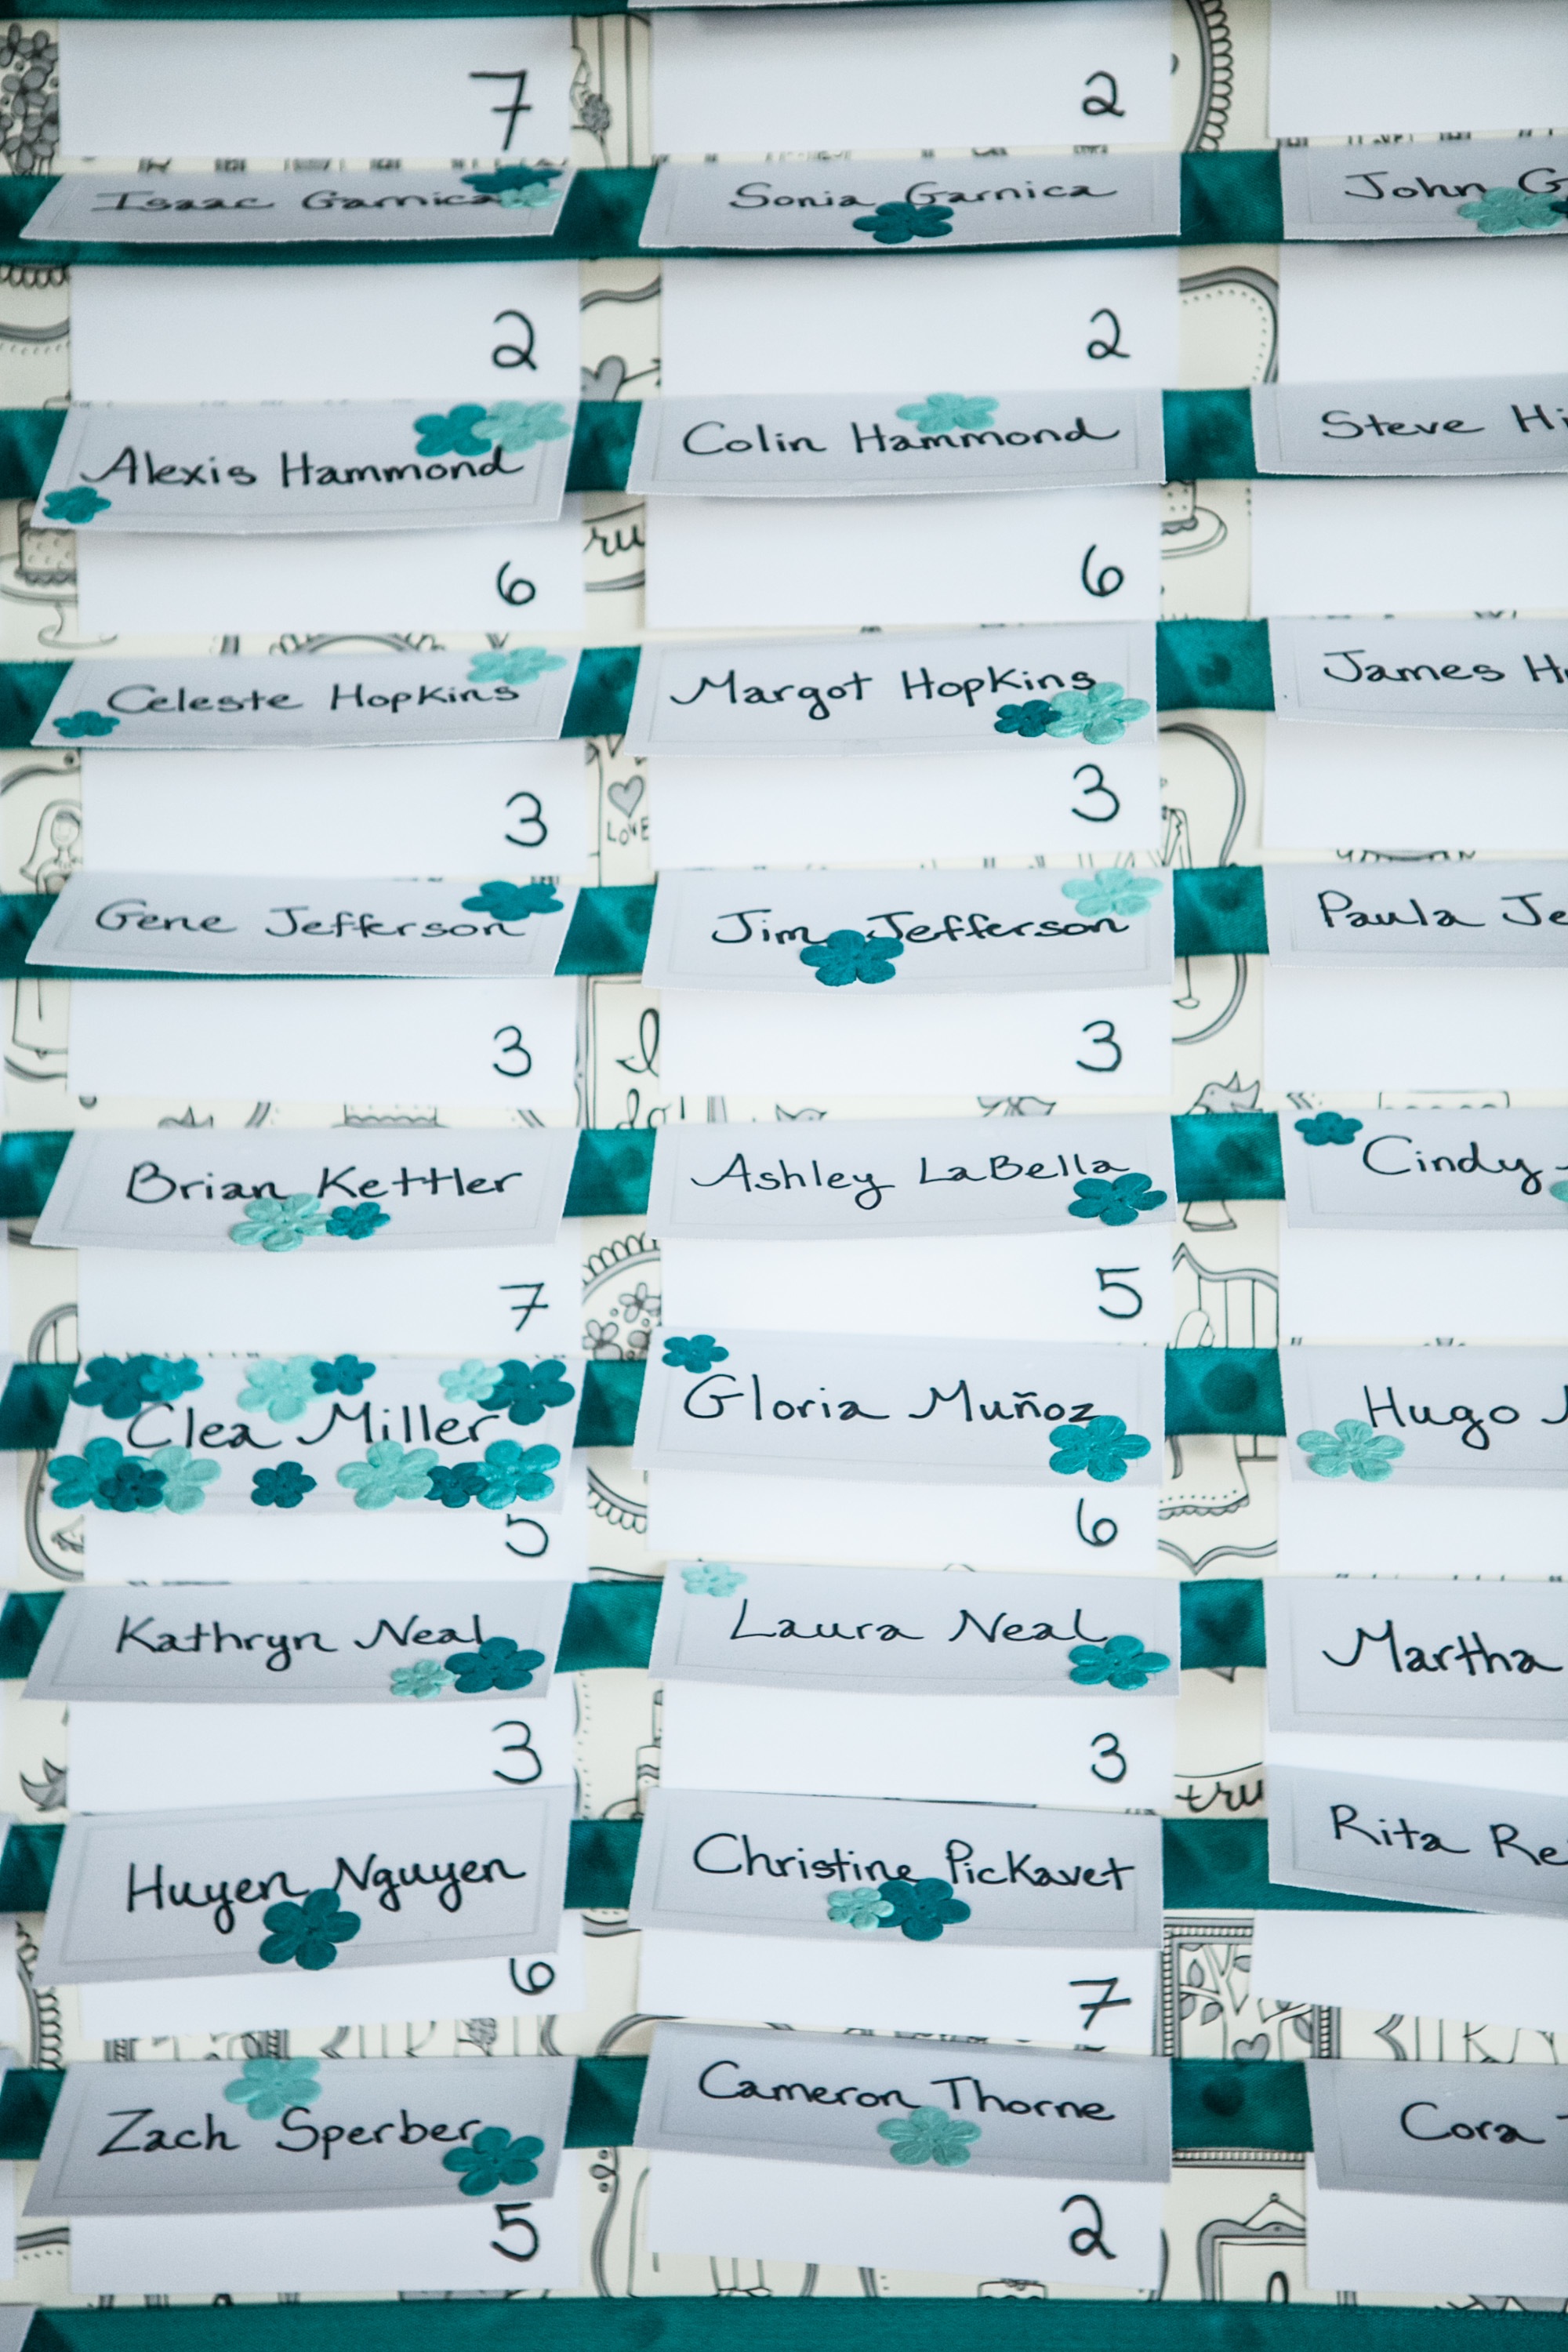 7 2
Isaac Garnica Sonia Garnica John G
2 2
Alexis Hammond Colin Hammond Steve Hi
ru
6 6
Celeste Hopkins Margot Hopkins James H
LOVE
3 3
Gene Jefferson Jim Jefferson Paula Je
I
do!
3 3
Brian Kettler Ashley LaBella Cindy
7 5
Clea Miller Gloria Muñoz Hugo
5 6
Kathryn Neal Laura Neal Martha
3 3
tru
Huyen Nguyen Christine Pickavet Rita Re
6 7
Zach Sperber Cameron Thorne Cora
5 2